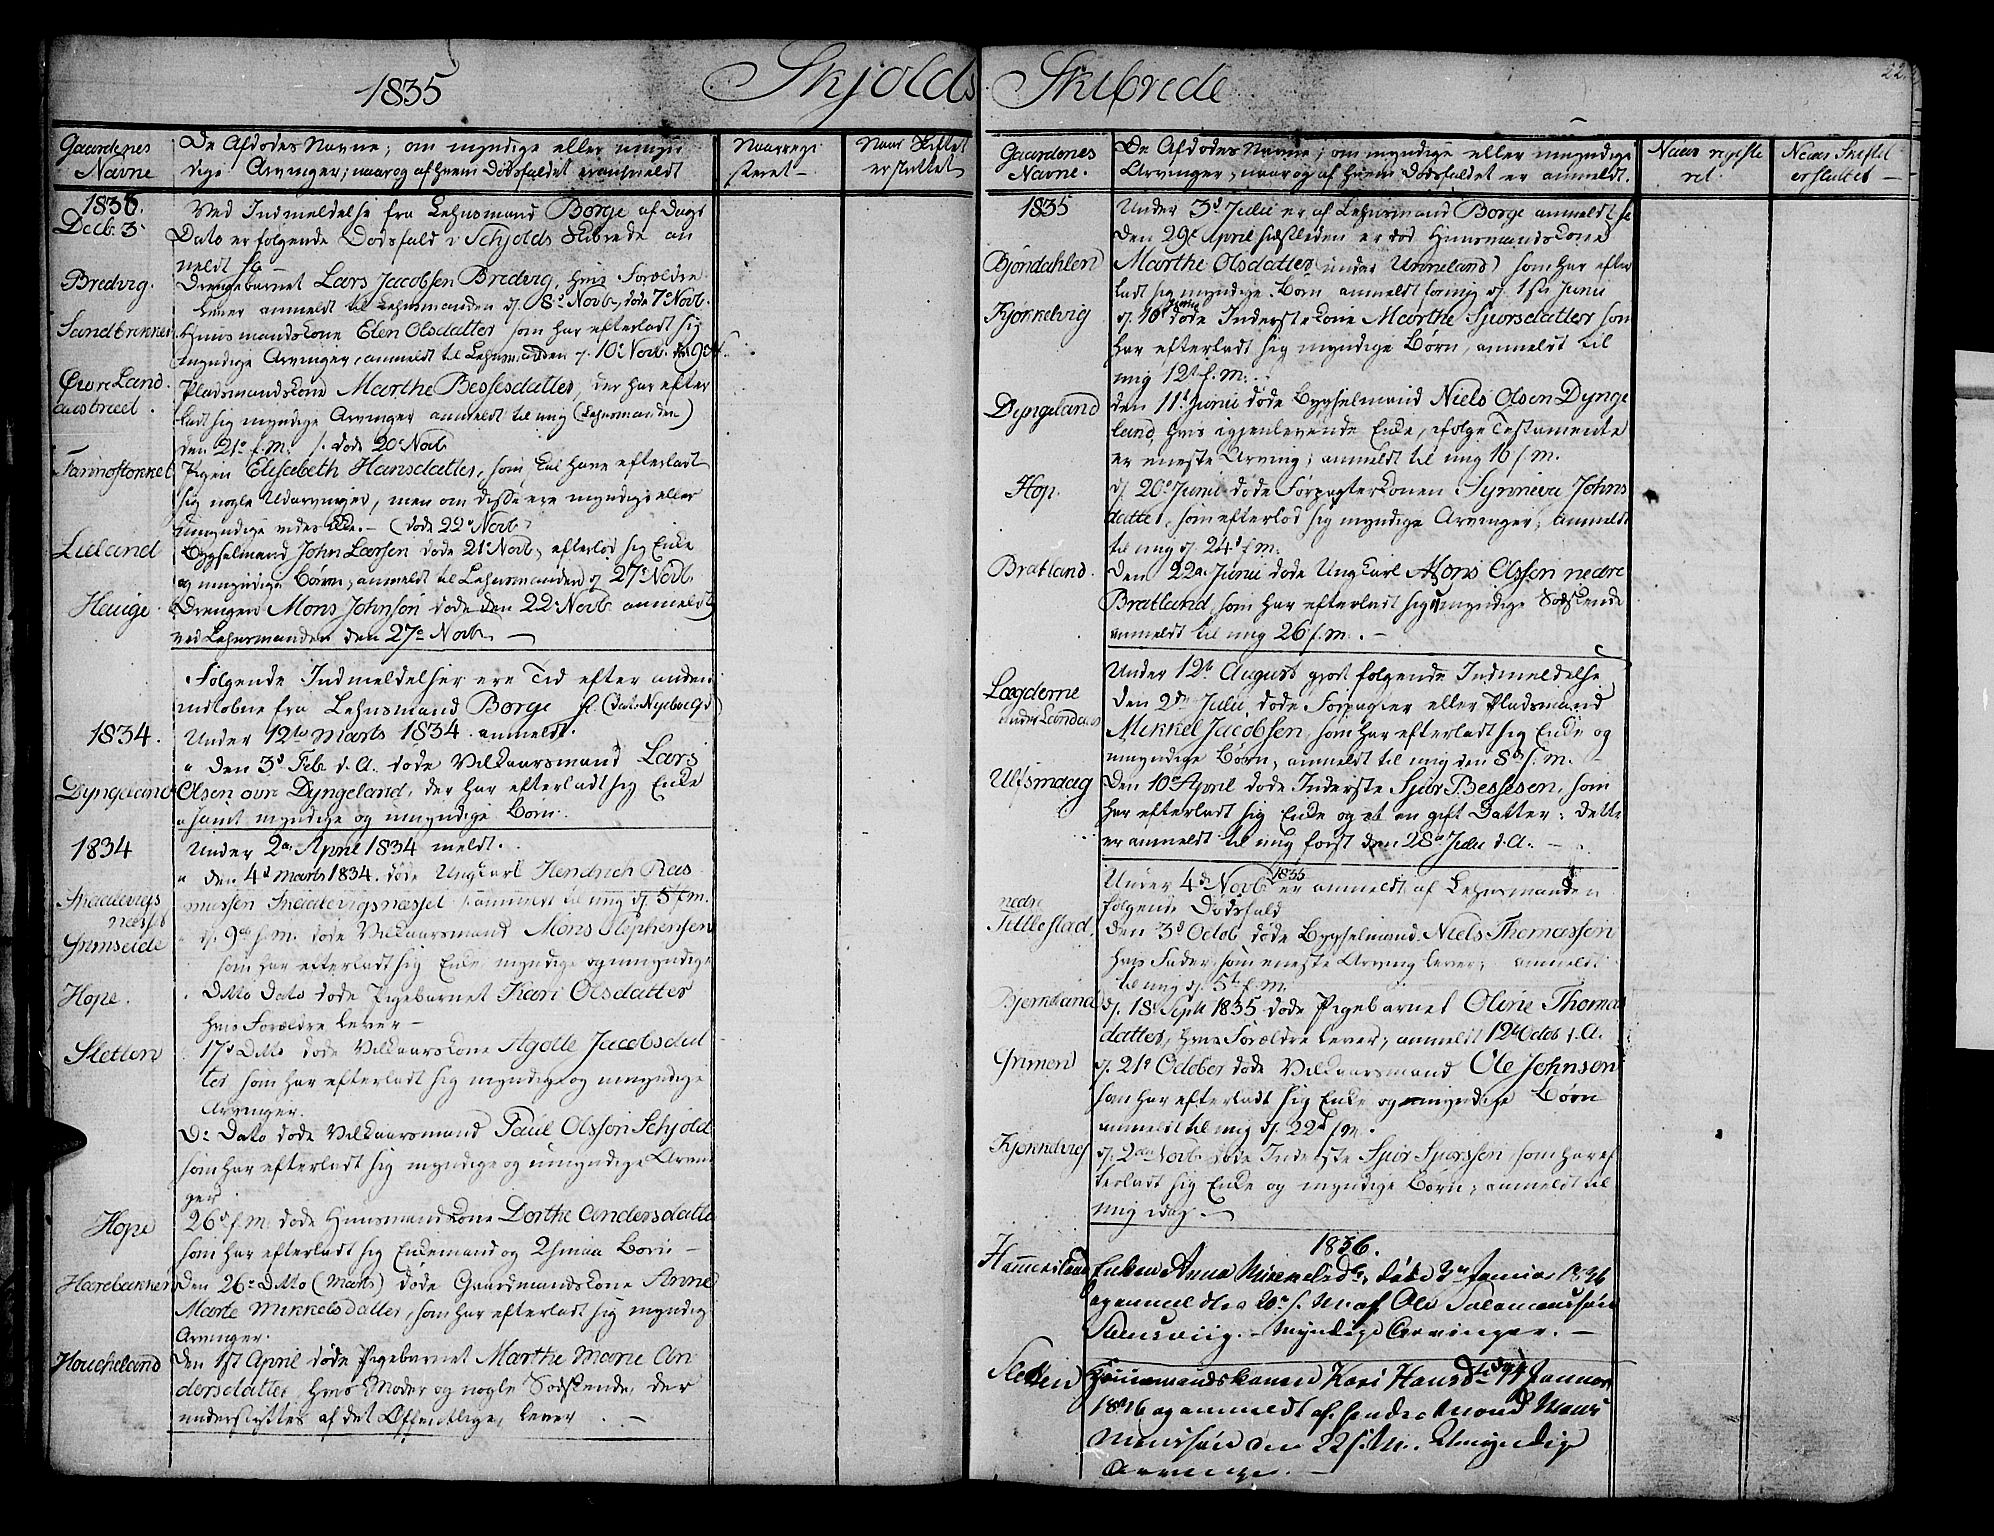 1835 Skjolds Skibrede
22.
Gaardenes Navne
De Afdødes Navne; om myndige eller umyn
dige Arvinger; naar og af hvem Dødsfaldet er anmeldt
Naar regi
steret
Naar Skiftet
er sluttet
1835.
Decb. 3
Ved Indmeldelse fra Lehnsmand Borge af Dags
Dato er følgende Dødsfald i Schjolds Skibrede an
meldt
Bredvig.
Drengebarnet Lars Jacobsen Bredvig, hvis Forældre
Lever anmeldt til Lehnsmanden d. 8de Novb, døde 7 Novb.
Sandbrekken
Huusmandskone Elen Olsdatter som har efterladt sig
myndige Arvinger, anmeldt til Lehnsmanden d. 10 Novb.
Øvre Land
austreed.
Pladsmandskone Marthe Bessesdatter, der har efter
ladt sig myndige Arvinger anmeldt til mig (Lehnsmanden)
den 21 f.M. døde 20 Novb
Pigen Elisabeth Hansdatter, som skal have efterladt
sig nogle Udarvinger, men om disse ere myndige eller
umyndige vides ikke. - (døde 22 Novb)
Lieland
Bygselmand John Larsen døde 21 Novb, efterlod sig Enke
og umyndige Børn; anmeldt til Lehnsmanden d 27 Novb.
Heuige
Drengen Mons Johnsøn døde den 22 Novb anmeldt
ved Lehnsmanden den 27 Novb. -
Følgende Indmeldelser ere Tid efter anden
indløbne fra Lehnsmand Borge
1834.
Under 12te Marts 1834 anmeldt.
" den 3d Feb. d.A. døde Vilkaarsmand Lars
Dyngeland
Olsen øvre Dyngeland, der har efterladt sig Enke
samt myndige og umyndige Børn.
1834
Under 2d April 1834 meldt.
" den 4d Marts 1834. døde Ungkarl Hendrich Ras
Skaalevigs
næsset
mussen Skaalevigsnæsset anmeldt til mig d. 5 f.M.
Grimseide
" d. 9de f.M. døde Vilkaarsmand Mons Stephensen
som har efterladt sig Enke myndige og umyndige
Hope.
Ditto Dato døde Pigebarnet Kari Olsdatter
hvis Forældre Lever -
Sletten
17d Ditto døde Vilkaarskone Agotte Jacobsdat
ter som har efterladt sig myndige og umyndige
Arvinger.
D: Dato døde Vilkaarsmand Paul Olsson Schjold
som har efterladt sig myndige og umyndige Arvin
ger
Hope
26d f.M. døde Huusmandskone Dorthe Andersdatte
som har efterladt sig Enkemand og 2 smaa Børn -
Harebakken
Den 26 Ditto (Marts) døde Gaardmandskone Anne
Marte Mikkelsdatter, som har efterladt sig myndig
Arvinger.
Houcheland
Den 1st April døde Pigebarnet Marthe Marie An
dersdatter, hvis Moder og nogle Sødskende, der
understyttes af det Offentlige, Lever. -
Gaardenes
Navne.
De Afdødes Navne; om myndige eller umyndige
Arvinger, naar og af hvem Dødsfaldet er anmeldt.
Naar registe
ret
Naar Skiftet
er sluttet
1835
Under 3d Julii er af Lehnsmand Borge anmeldt
Den 29 April sidstleden er død Huusmandskone
Bjørndahlen
Marthe Olsdatter (under Unneland) som har efter
ladt sig myndige Børn anmeldt for mig d. 1ste Junii
Kjøkkelvig
d. 10 døde Inderstekone Marthe Sjursdatter som
har efterladt sig myndige Børn, anmeldt til
mig 12 f.M.
Dyngeland
den 11t Junii døde Bygselmand Niels Olsen Dynge
land, hvis igjenlevende Enke, ifølge Testamente
er eneste Arving; anmeldt til mig 16 f.M.
Hop.
d. 20 Junii døde Forpagterkonen Synneva Johns
datter, som efterlod sig myndige Arvinger; anmeldt
til mig d. 24d f.M.
Bratland.
Den 22d Junii døde Ungkarl Mons Olsson nedre
Bratland, som har efterladt sig umyndige Sødskende
anmeldt til mig 26 f.M. -
Under 12te August gjort følgende Indmeldelse
Lægderne
under Landaas
Den 2den Julii, døde Forpagter eller Pladsmand
Mikkel Jacobsen, som har efterladt sig Enke og
umyndige Børn, anmeldt til mig den 8de f.M.
Ulfsmaag
Den 10de April døde Inderste Sjur Bessesen, som
har efterladt sig Enke og en gift Datter; dette
er anmeldt til mig først den 28d Julii d.A. -
Under 4de Novb 1835 er anmeldt af Lehnsmanden
følgende Dødsfald
nedre
Titlestad.
den 3d Octob døde Bygselmand Niels Thomassen
hvis Fader som eneste Arving lever; anmeldt
til mig d. 5t f.M.
Bjørkeland
d. 18 Sept 1835 døde Pigebarnet Oline Thomas
datter, hvis Forældre Lever; anmeldt 12te Octob d.A.
Grimen
d. 21 October døde Vilkaarsmand Ole Johnsen
som har efterladt sig Enke og myndige Børn
anmeldt til mig d. 22d f.M.
Kjøkkelvig
d. 2den Novb døde Inderste Sjur Sjursson som har ef
terladt sig Enke og myndige Børn; anmeldt til
mig idag. -
1836.
Hammersland
Enken Anna døde 3die Januar 1836
og anmeldt den 20 f.M. af Ole Salamonssøn
Steensviig. - Myndige Arvinger. -
Sletten
Huusmandskonen Kari Hansd. Januar
1836 og anmeldt af hendes Mand Mons
Monssøn den 22 f.M. Umyndige
Arvinger. -